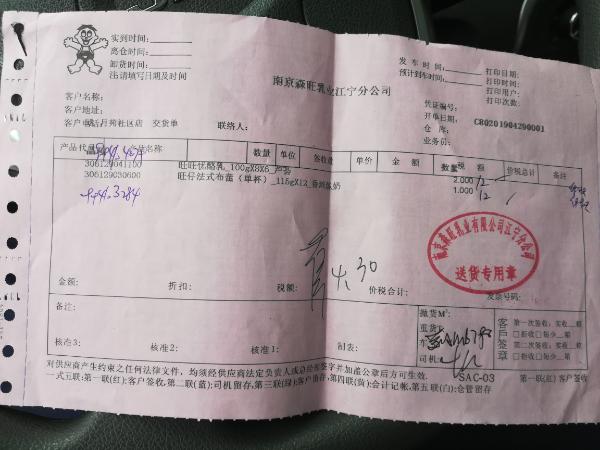 实到时间:
离仓时间:
卸货时间:
注:请填写日期及时间
南京森旺乳业江宁分公司
发 车 时 间:
预计到车时间:
打印日期:
打印时间:
打印用户:
打印次数:
客户名称:
客户地址:
月苑社区店 交货单
联络人:
凭证编号:
开单日期: CB0201904290001
仓 库:
业务员:
产品代 数量 单位 签收 单价 金 额 数量 税 额 价税总计 备注
306129041100 旺旺优酪乳_100gX8X6_芦荟 2.000 12
306129030600 旺仔法式布蕾（单杯）_115gX12_香 1.000 12
南京森旺乳业有限公司江宁分公司
送货专用章
4.30
金额: 折扣: 税额: 价税合计: 发票号码:
备注:
抛货M³:
重货T:
司机
客户签章
第一次签收: 实收__箱
□拒收□每少__箱
第二次签收: 实收__箱
□拒收□每少__箱
核准3: 核准2: 核准1: 制表:
对供应商产生约束之任何法律文件，均须经供应商法定负责人或总经理签字并加盖公章后方可生效.
一式五联:第一联(红):客户签收,第二联(蓝):司机留存,第三联(绿):客户留存,第四联(黄):会计记帐,第五联(白):仓管留存
SAC-03
第一联(红)客户签收